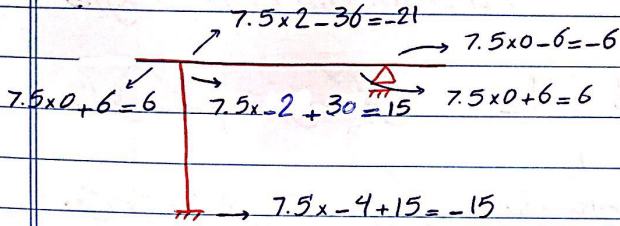 7.5x2-36=-21
7.5x0-6=-6
7.5x0+6=6
7.5x-2+30=15
7.5x0+6=6
7.5x-4+15=-15